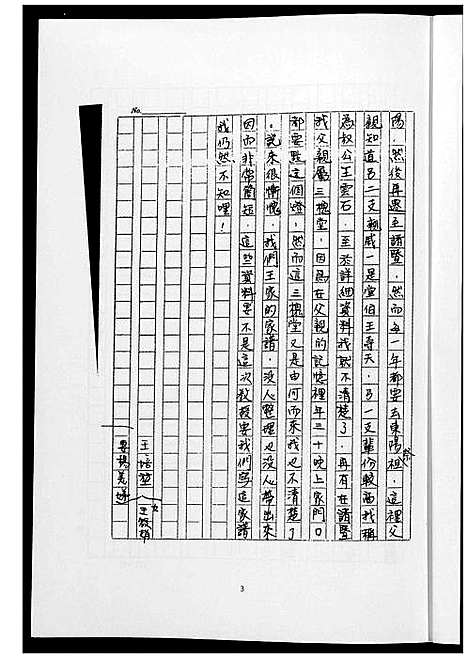 陽．然後再遷至諸暨．然而每一年都要去東陽祭祖．這裡父
親知道另二支親戚一是堂伯王壽天．另一支輩份較高我稱
為叔公王雲石．至於詳細資料我就不清楚了．再有在諸暨
我父親屬三槐堂．因為在父親的記憶裡年三十晚上家門口
都要點這個燈．然而這三槐堂又是由何而來我也不清楚了
．說來很慚愧．我們王家的家譜．沒人整理也沒人帶出來
因而非常簡短．這些資料要不是這次教授要我們寫這家譜
我仍然不知哩！
No.
王培堃
女王筱
妻楊美
3